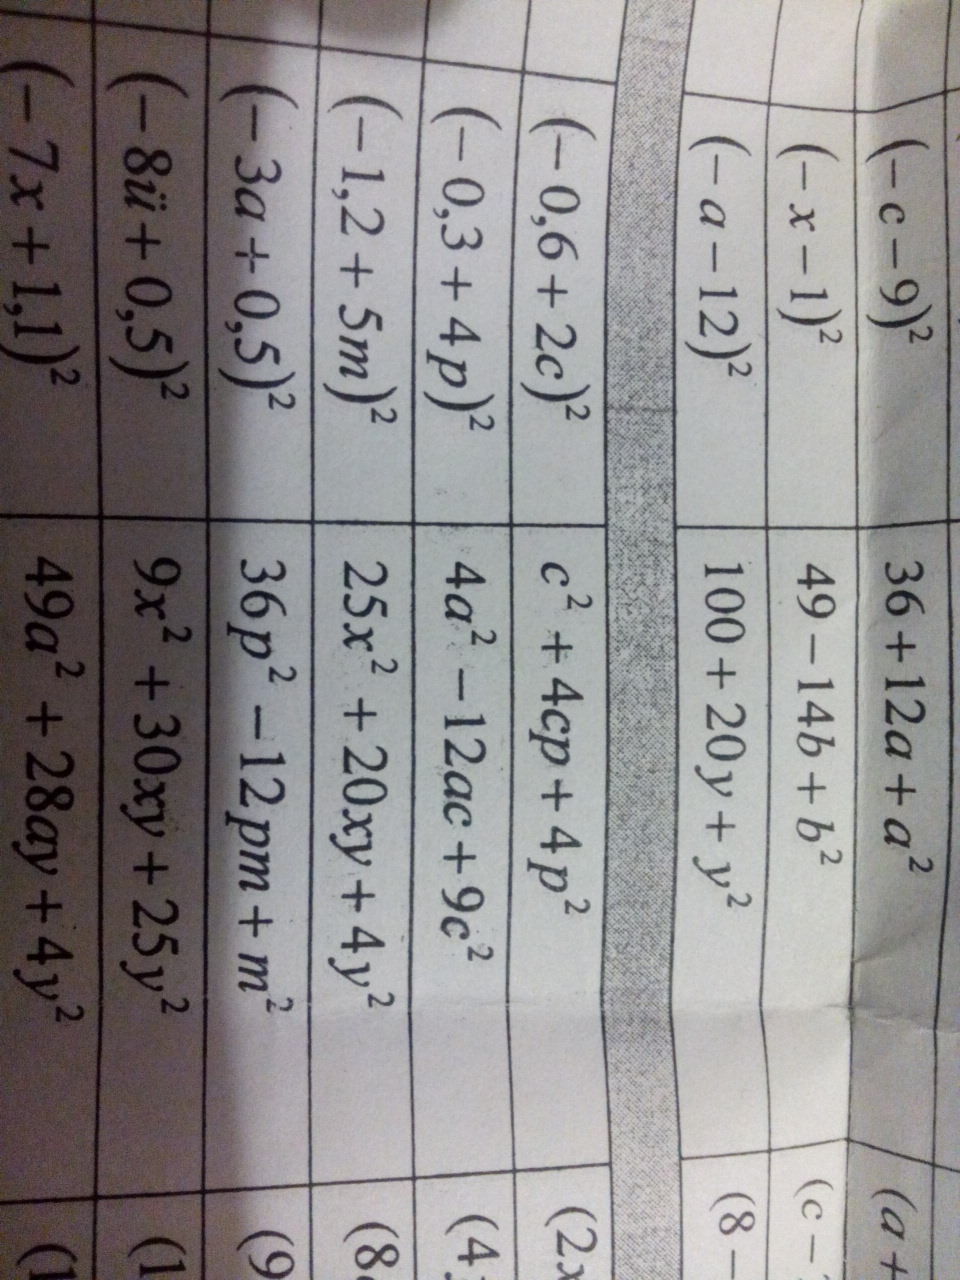 (– c – 9)² 36 + 12a + a² (a +
(– x – 1)² 49 – 14b + b² (c –
(– a – 12)² 100 + 20y + y² (8 –
(– 0,6 + 2c)² c² + 4cp + 4p² (2x
(– 0,3 + 4p)² 4a² – 12ac + 9c² (4
(– 1,2 + 5m)² 25x² + 20xy + 4y² (8
(– 3a + 0,5)² 36p² – 12pm + m² (9
(– 8ü + 0,5)² 9x² + 30xy + 25y² (1
(– 7x + 1,1)² 49a² + 28ay + 4y² (1